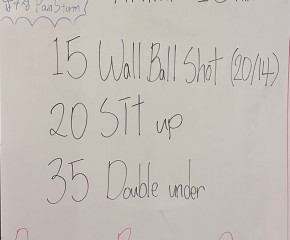 15 Wall Ball Shot (20/14)
20 SIt up
35 Double under